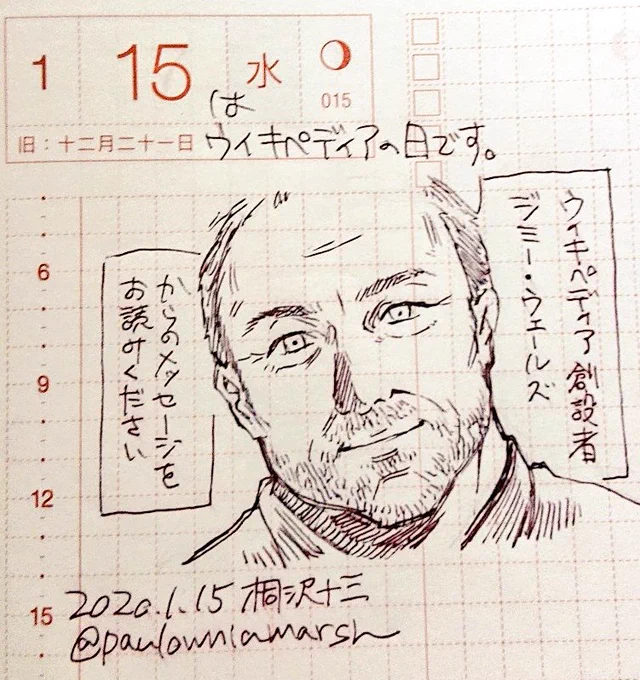 1 15 水
015
は
旧：十二月二十一日 ウィキペディアの日です。
ウィキペディア創設者
ジミー・ウェールズ
からのメッセージを
お読みください
6
9
12
15
2020.1.15 桐沢十三
@paulowniamarsh